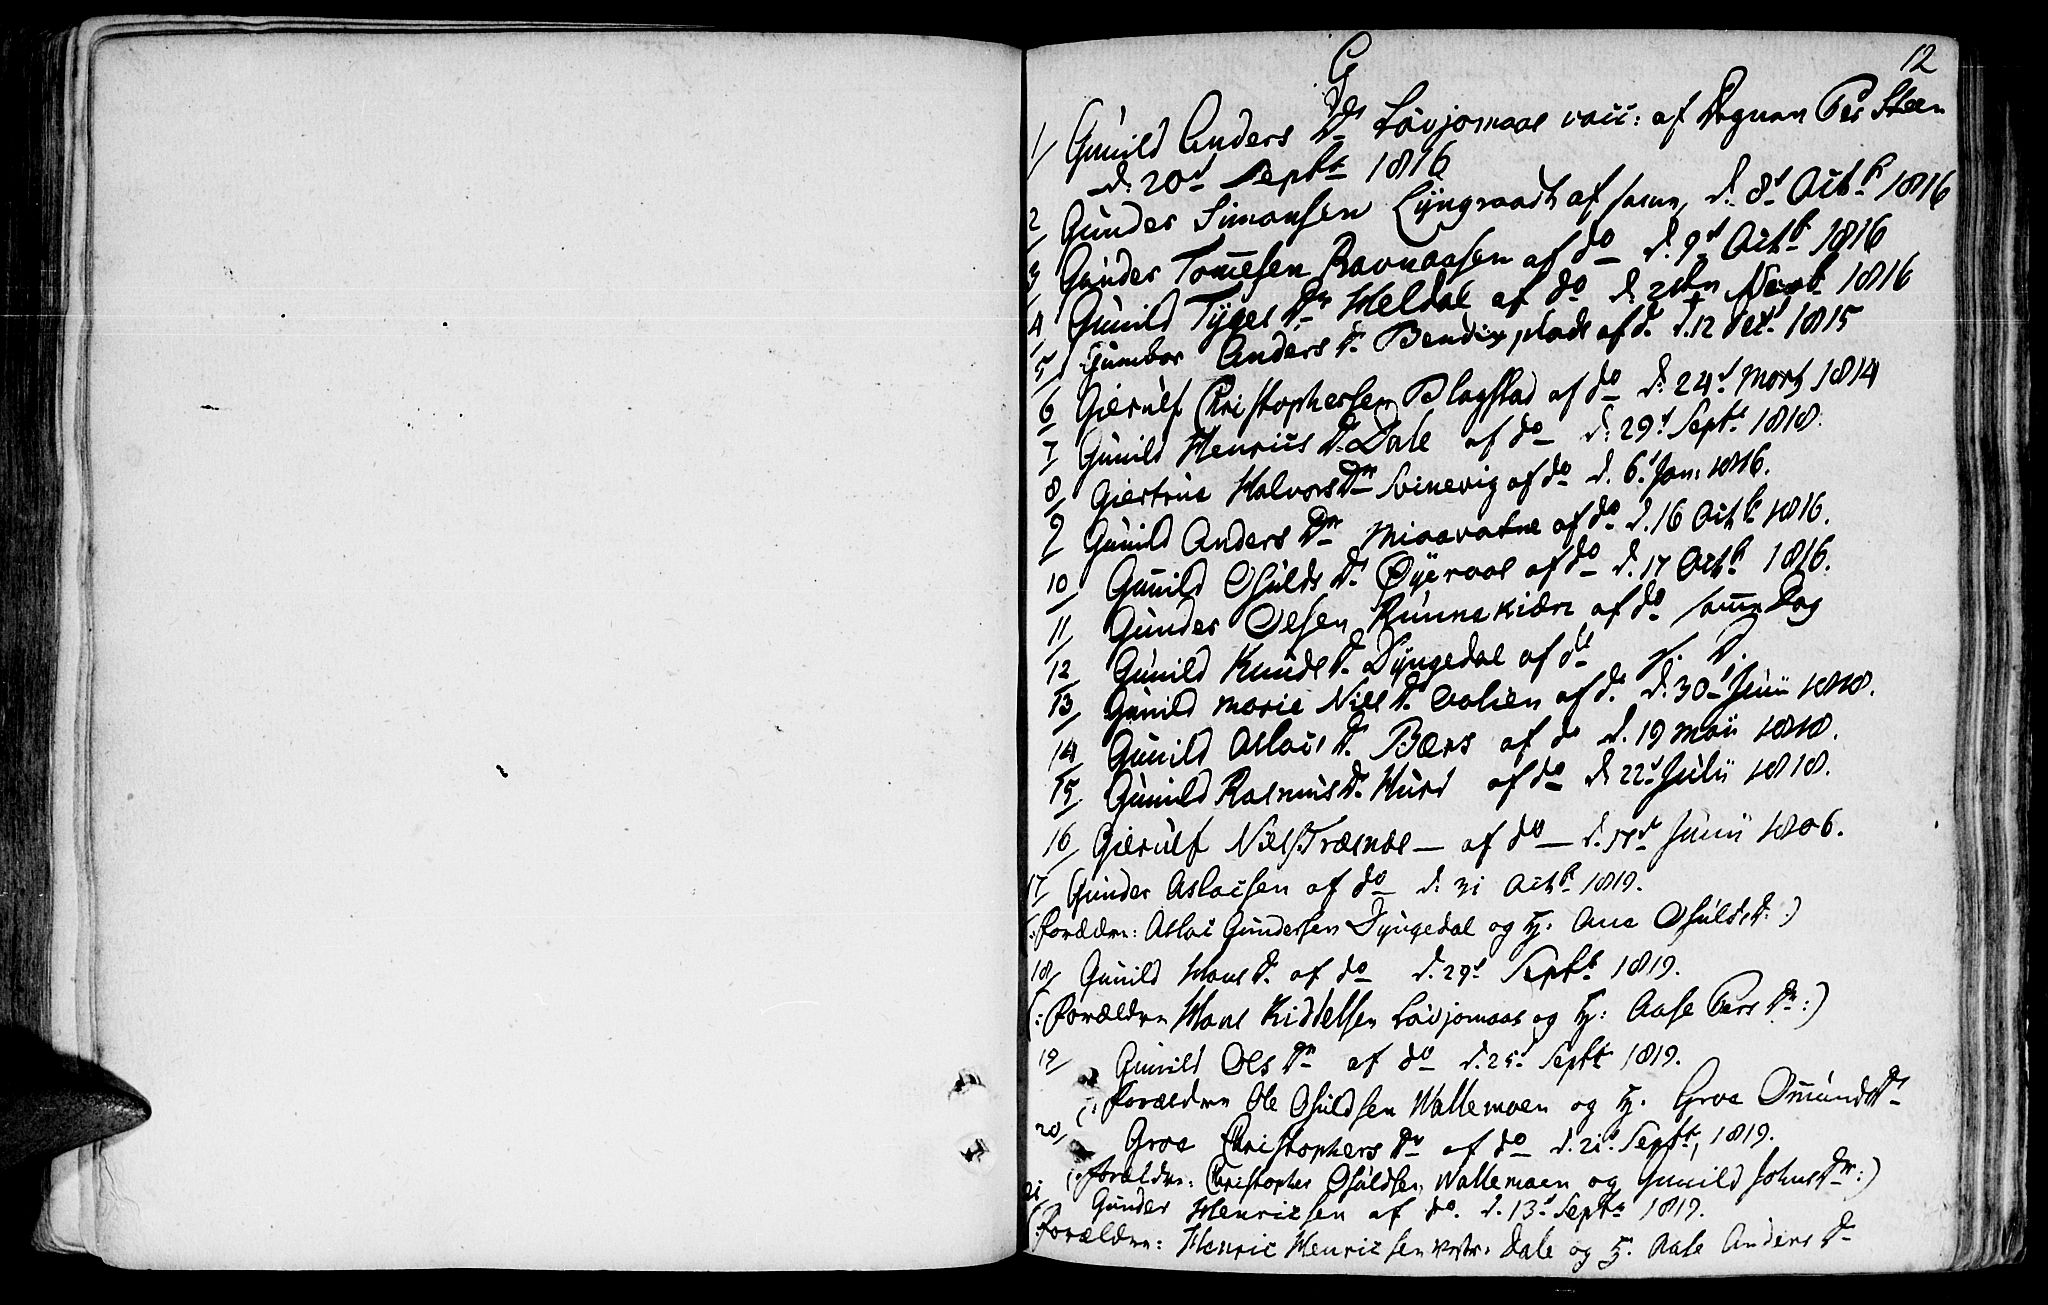 12
G
1/ Gunild Anders Dr Løvjomaas vacc: af Degnen Per Steen
d: 20d Septr 1816
2/ Gunder Simonsen Lyngraadt af samme, d. 8d Octbr 1816
3/ Gunder Tomesen Ravnaasen af do d. 9d Octbr 1816
4/ Gunild Tyges Dr Heldal af do d. Novb 1816
5/ Gumbor Anders D. Bendixplads af do d. 12 1815
6/ Gierulf Christophersen Flagstad af do d: 24d Marts 1814
7/ Gunild Henrics D. Dale af do d: 29d Septr 1818.
8/ Giertrue Halvors Dr Svinevig af do d. 6d Jan: 1816.
9/ Gunild Anders Dr Miaavatne af do d. 16 Octbr 1816.
10/ Gunild Osulds D. Øyeraas af do d. 17 Octbr 1816.
11/ Gunder Olsen Runnekiær af do samme Dag
12/ Gunild Knuds D. Dyngedal af do s. D.
13/ Gunild Marie Niels D. Valien af do d. 30d Junii 1818.
14/ Gunild Aslacs D. Bærs af do d. 19 Maii 1818.
15/ Gunild Rasmus D. Hurd af do d. 22d Julii 1818.
16/ Gierulf Niels. Trænes — af do — d. 17d Junii 1806.
17/ Gunder Aslacsen af do d. 31 Octbr 1819.
(: Forældre: Aslac Gundersen Dyngedal og H. Ane Osulds D. :)
18/ Gunild Hans D. af do d. 29d Septbr 1819.
(: Forældre Hans Kiddelsen Løvjomaas og H: Aase Pers Dr :)
19/ Gunild Ols Dr af do d. 25d Septbr 1819.
(: Forældre Ole Osuldsen Wallemoen og H. Groe Omunds Dr
20/ Groe Christophers Dr af do d. 21d Septbr, 1819.
(: Forældre: Christopher Osuldsen Wallemoen og Gunild Johns Dr :)
21 Gunder Henricsen af do. d. 13d Septbr 1819.
(: Forældre: Henric Henricsen Dale og H. Aase Anders Dr